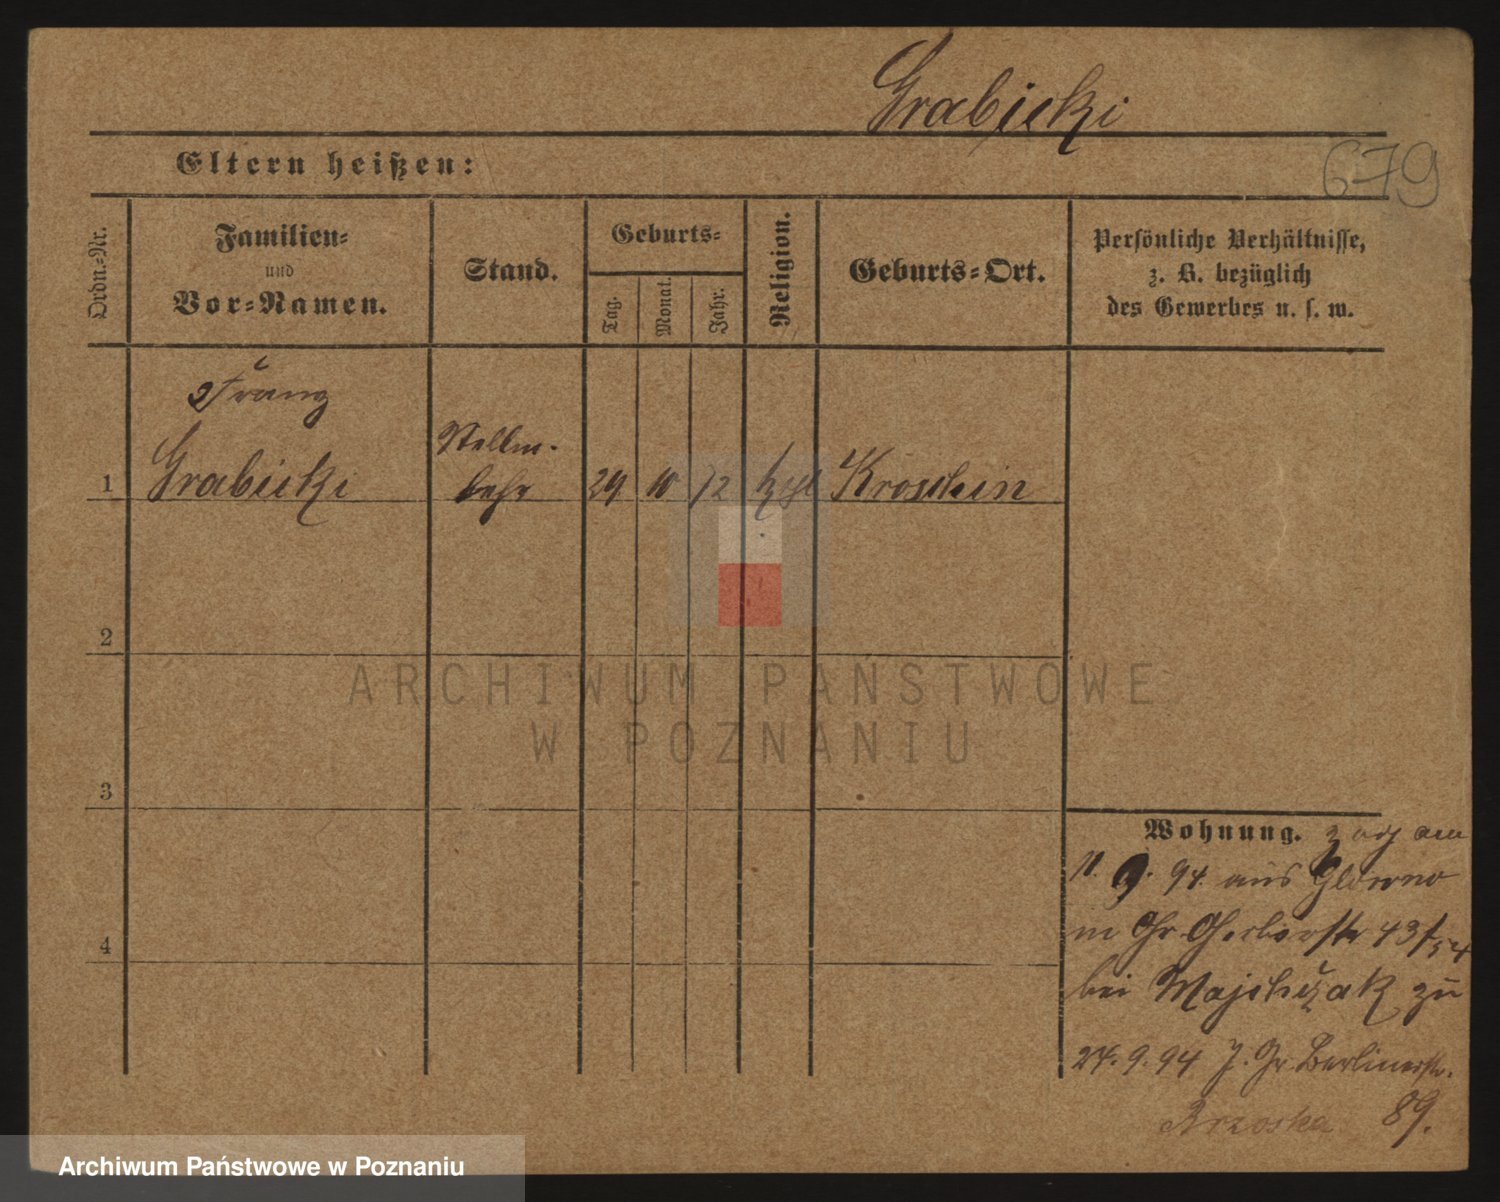 Grabicki
679
Eltern heißen:
Ordn.-Nr.
Familien-
und
Vor-Namen.
Stand.
Geburts-
Tag.
Monat.
Jahr.
Religion.
Geburts-Ort.
Persönliche Verhältnisse,
z. B. bezüglich
des Gewerbes u. s. w.
Franz
1 Grabicki
29 10 72 kth Kroschin
2
3
4
ARCHIWUM PAŃSTWOWE
W POZNANIU
Wohnung. zog am
11. 9. 94. aus Glowno
in Gr. Gerberstr 43
bei Majchczak zu
24. 9. 94 J. Gr. Berlinerstr.
Brzoska 89.
Archiwum Państwowe w Poznaniu